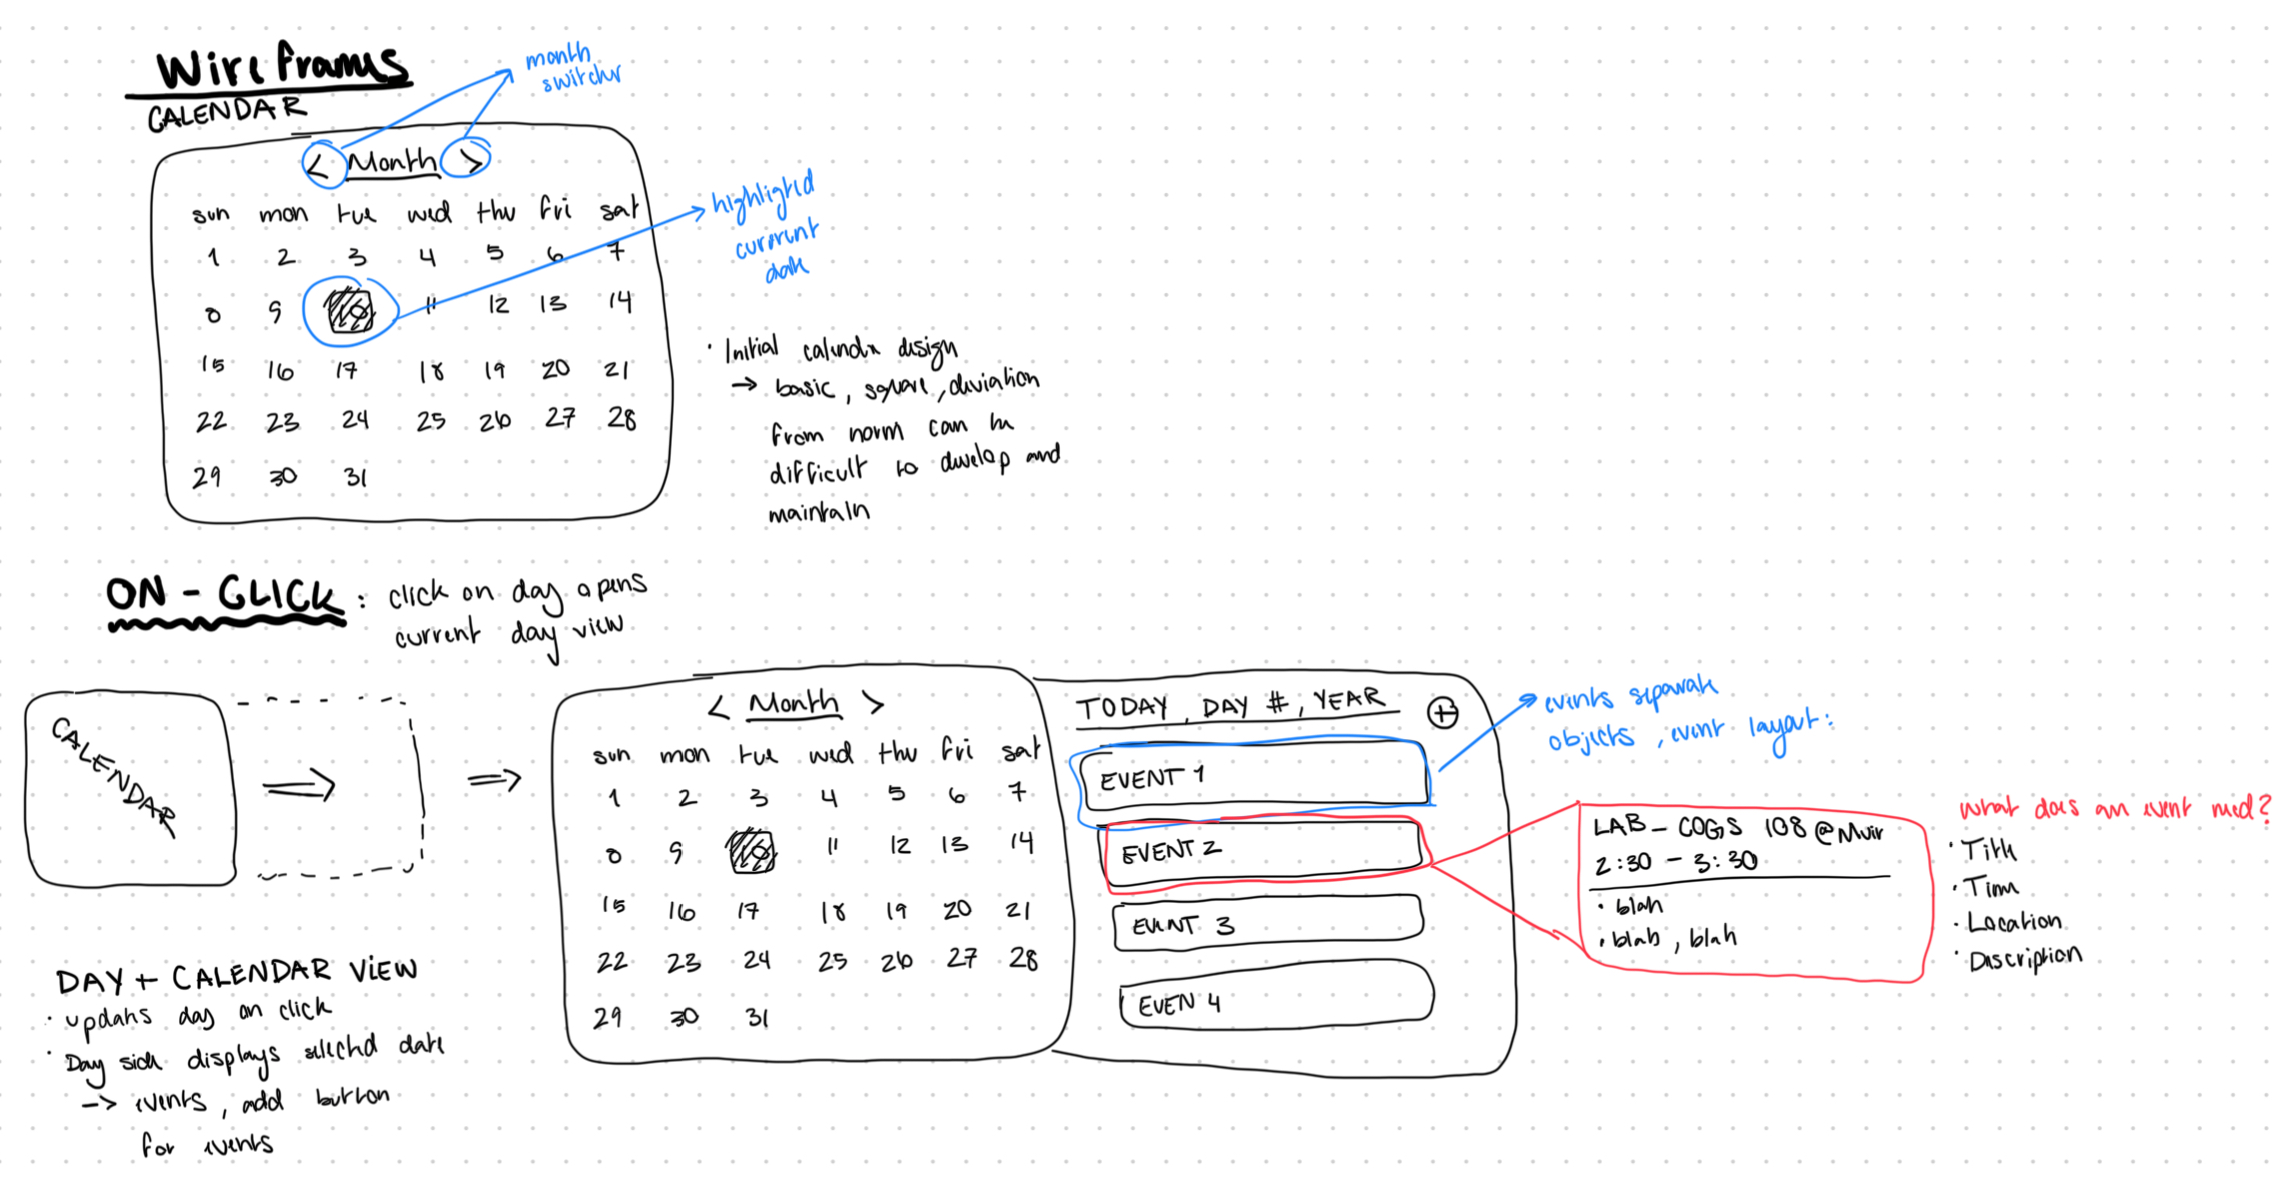 Wireframes
CALENDAR
month
switcher
< Month >
sun mon tue wed thu fri sat
1 2 3 4 5 6 7
8 9 10 11 12 13 14
15 16 17 18 19 20 21
22 23 24 25 26 27 28
29 30 31
highlighted
current
date
· Initial calendar design
→ basic, square, deviation
from norm can be
difficult to develop and
maintain
ON - CLICK : click on day opens
current day view
CALENDAR
⇒
⇒
< Month >
sun mon tue wed thu fri sat
1 2 3 4 5 6 7
8 9 10 11 12 13 14
15 16 17 18 19 20 21
22 23 24 25 26 27 28
29 30 31
TODAY, DAY #, YEAR +
EVENT 1
EVENT 2
EVENT 3
EVEN 4
events separate
objects, event layout:
LAB - COGS 108 @Muir
2:30 - 3:30
· blah
· blah, blah
what does an event need?
· Title
· Time
· Location
· Discription
DAY + CALENDAR VIEW
· updates day on click
· Day side displays selected date
-> events, add button
for events